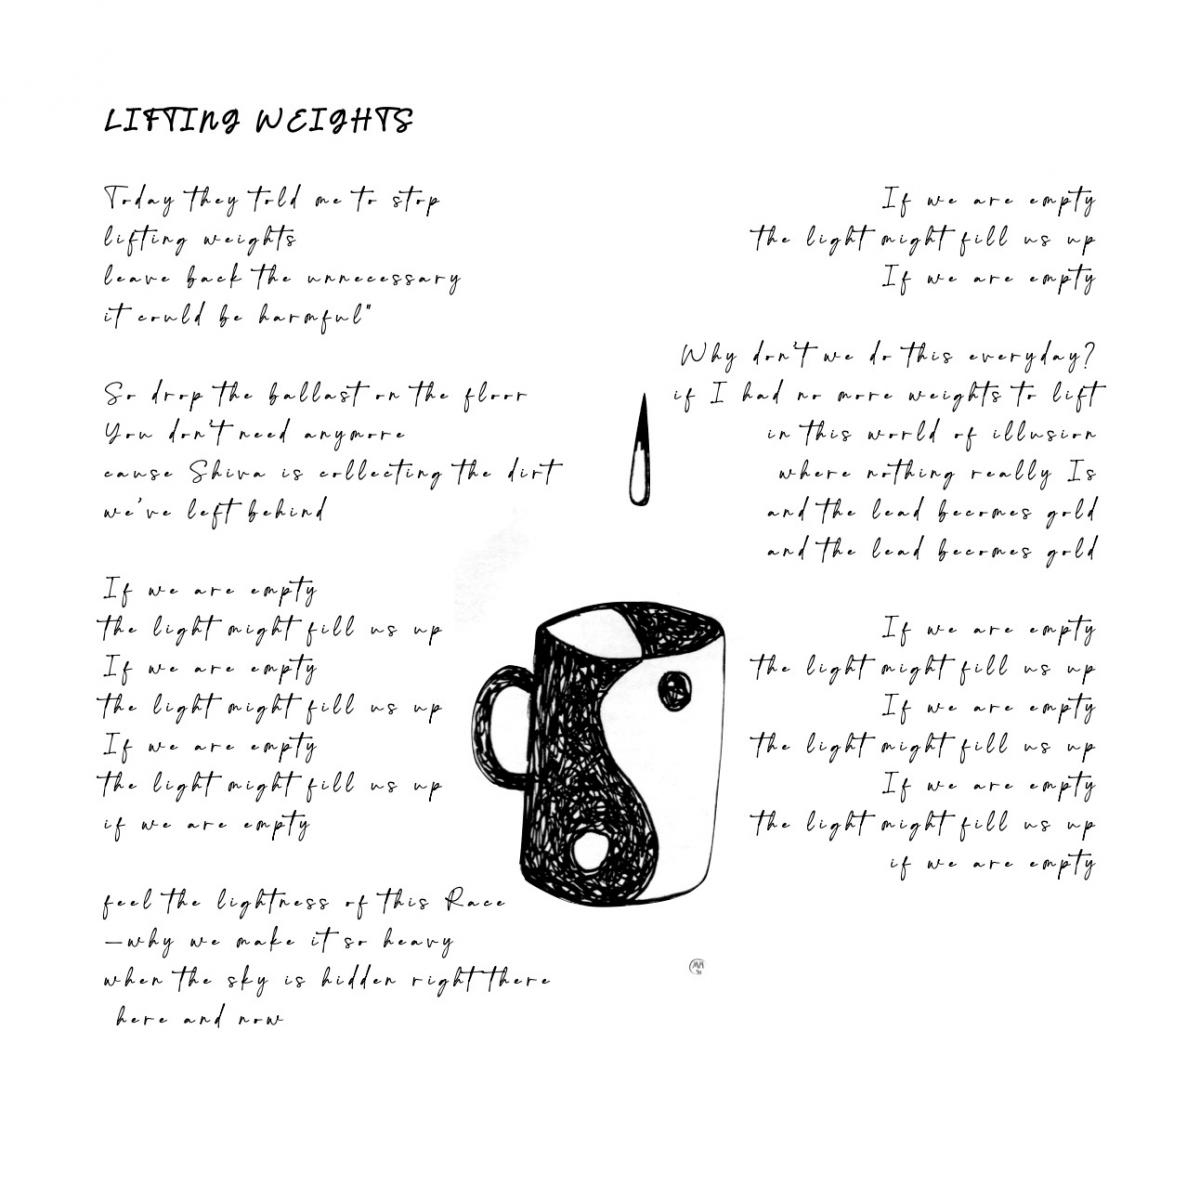 LIFTING WEIGHTS
Today they told me to stop
lifting weights
leave back the unnecessary
it could be harmful"
So drop the ballast on the floor
You don't need anymore
cause Shiva is collecting the dirt
we've left behind
If we are empty
the light might fill us up
If we are empty
the light might fill us up
If we are empty
the light might fill us up
if we are empty
feel the lightness of this Race
—why we make it so heavy
when the sky is hidden right there
here and now
If we are empty
the light might fill us up
If we are empty
Why don't we do this everyday?
if I had no more weights to lift
in this world of illusion
where nothing really Is
and the lead becomes gold
and the lead becomes gold
If we are empty
the light might fill us up
If we are empty
the light might fill us up
If we are empty
the light might fill us up
if we are empty